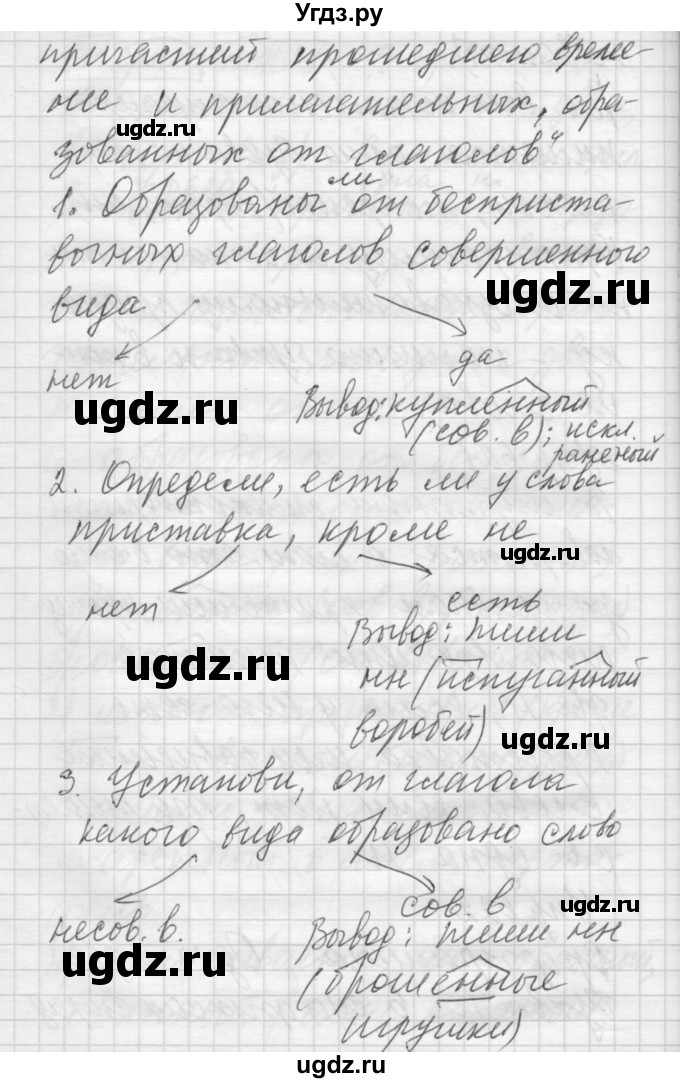 Угдз.ру
причастий прошедшего време-
ни и прилагательных, обра-
ugdz.ru
зованных от глаголов"
ли
1. Образованы от бесприста-
вочных глаголов совершенного
ugdz.ru
вида
да
нет
ugdz.ru
Вывод: купленный
(сов. в); искл.
раненый
2. Определи, есть ли у слова
приставка, кроме не
ugdz.ru
нет
есть
Вывод: пиши
ugdz.ru
нн (испуганный
воробей)
ugdz.ru
3. Установи, от глагола
какого вида образовано слово
несов. в.
сов. в
ugdz.ru
Вывод: пиши нн
ugdz.ru
(брошенные
игрушки)
ugdz.ru